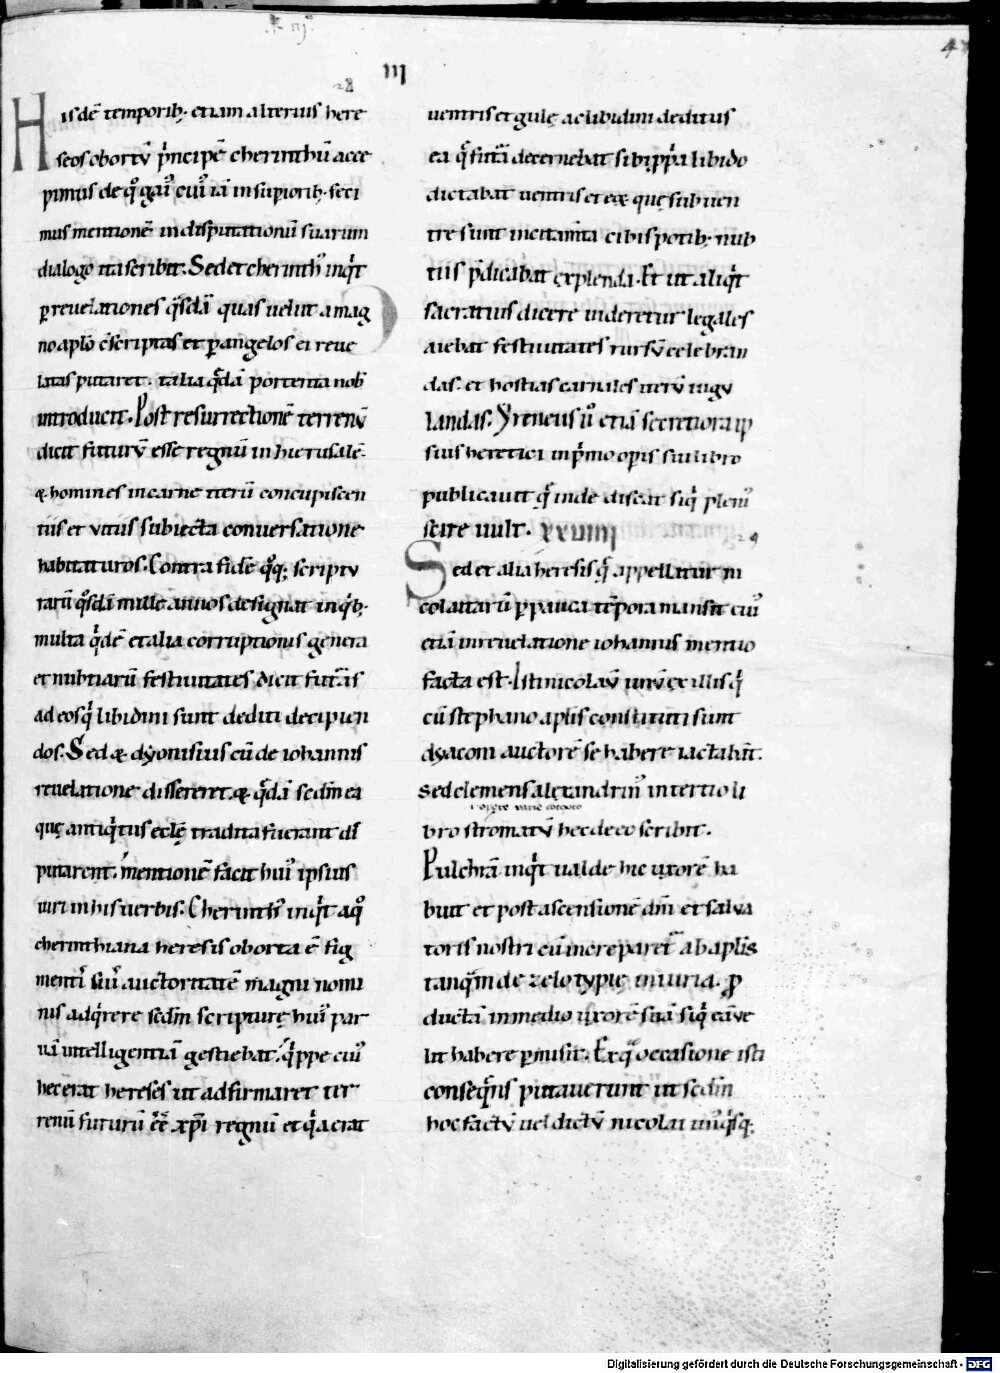 III
28
His dē temporib; etiam alterius here
seos obortū p'ncipē cherinthū acce
pimus de q° gai' cui' iā in supiorib; feci
mus mentionē in disputationū suarum
dialogo ita scribit. Sed et cherinth' inq't
p reuelationes q'sdā quas uelut a mag
no aplo c̄scriptas et p angelos ei reue
latas putaret. talia q'dā portenta nob'
introducit. Post resurrectionē terrenū
dicit futurū esse regnū in hierusalē.
& homines in carne iterū concupiscen
tiis et vitiis subiecta conuersatione
habitaturos. Contra fidē q°q; scriptu
rarū q°sdā mille annos designat in q'b;
multa q'dē et alia corruptionis genera
et nubtiarū festiuitates dicit futuras
ad eos q' libidini sunt dediti decipien
dos. Sed & dyonisius cū de iohannis
reuelatione dissereret & q'dā sedm ea
que antiq'tus eclē tradita fuerant dis
putarent. mentionē facit hui' ipsius
uiri in his uerbis. Cherinth' inq't a q°
cherinthiana heresis oborta ē fig
menti sui auctoritatē magni nomi
nis adq'rere sedm scripturę hui' par
uā intelligentiā gestiebat. q'ppe cui'
hec erat hereses ut adfirmaret ter
renū futurū ēē xpi regnū et q'a erat
uentris et gulę ac libidini deditus
ea q' fututā decernebat sibi pp'a libido
dictabat uentris et ex que sub uen
tre sunt incitamta cibis potib; nub
tiis p̄dicabat explenda. Et ut aliq't
sacratius dicere uideretur legales
aiebat festiuitates rursū celebran
das. et hostias carnales iterū iugu
landas. Yreneus ū etiā secretiora ip
sius heretici in p'mo opis sui libro
publicauit q' inde discat siq' pleni'
scire uult. XXVIIII
29
Sed et alia heresis q' appellatur ni
colaitarū p pauca tēpora mansit cui'
etiā in reuelatione iohannis mentio
facta est. Isti nicolaū unū ex illis q'
cū stephano aplis constituti sunt
dyaconi auctorē se habere iactabāt.
sed clemens alexandrin' in tertio li
bro stromatū hec de eo scribit.
Pulchrā inq't ualde hic uxorē ha
buit et post ascensionē dm̄ et salua
toris nostri cū increparet' ab aplis
tanq'm de zelotypię iniuria. p
ductā in medio uxorē suā siq' eā ue
lit habere pmisit. Ex q' occasione isti
conseq'ns putauerunt ut sedm
hoc factū uel dictū nicolai un'q'sq;
Digitalisierung gefördert durch die Deutsche Forschungsgemeinschaft - DFG